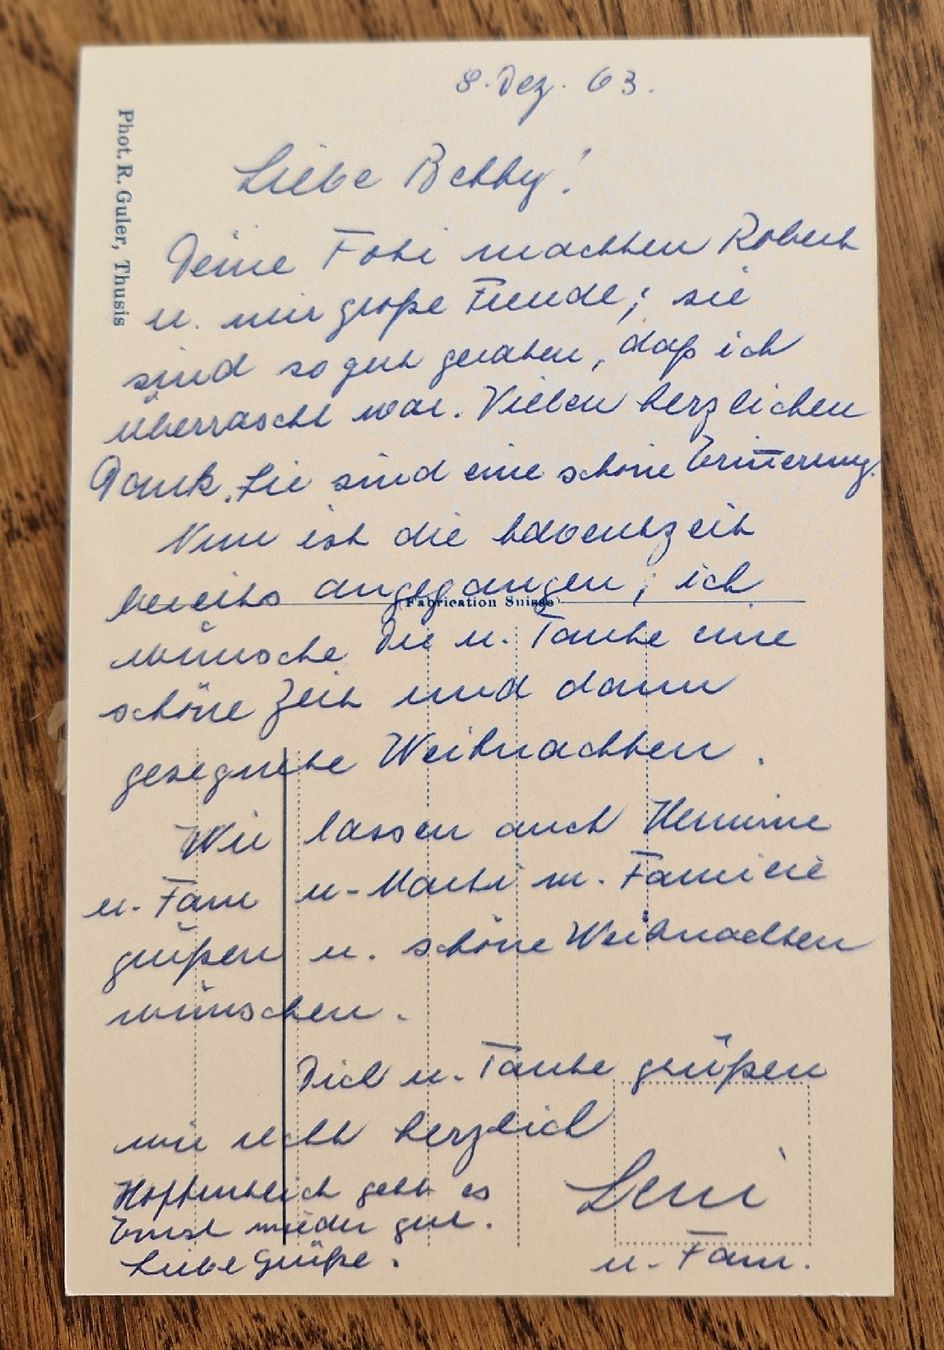 8. Dez. 63.
Phot. R. Guler, Thusis
Liebe Betty!
Deine Foti machten Robert
u. mir große Freude; sie
sind so gut geraten, daß ich
überrascht war. Vielen herzlichen
Dank. Sie sind eine schöne Erinnerung.
Nun ist die Adventszeit
bereits angegangen; ich
Fabrication Suisse
wünsche Dir u. Tante eine
schöne Zeit und dann
gesegnete Weihnachten.
Wir lassen auch Hermine
u. Fam u. Marti m. Familie
grüßen u. schöne Weihnachten
wünschen.
Dich u. Tante grüßen
wir recht herzlich
Leni
u. Fam.
Hoffentlich geht es
Ernst wieder gut.
Liebe Grüße.